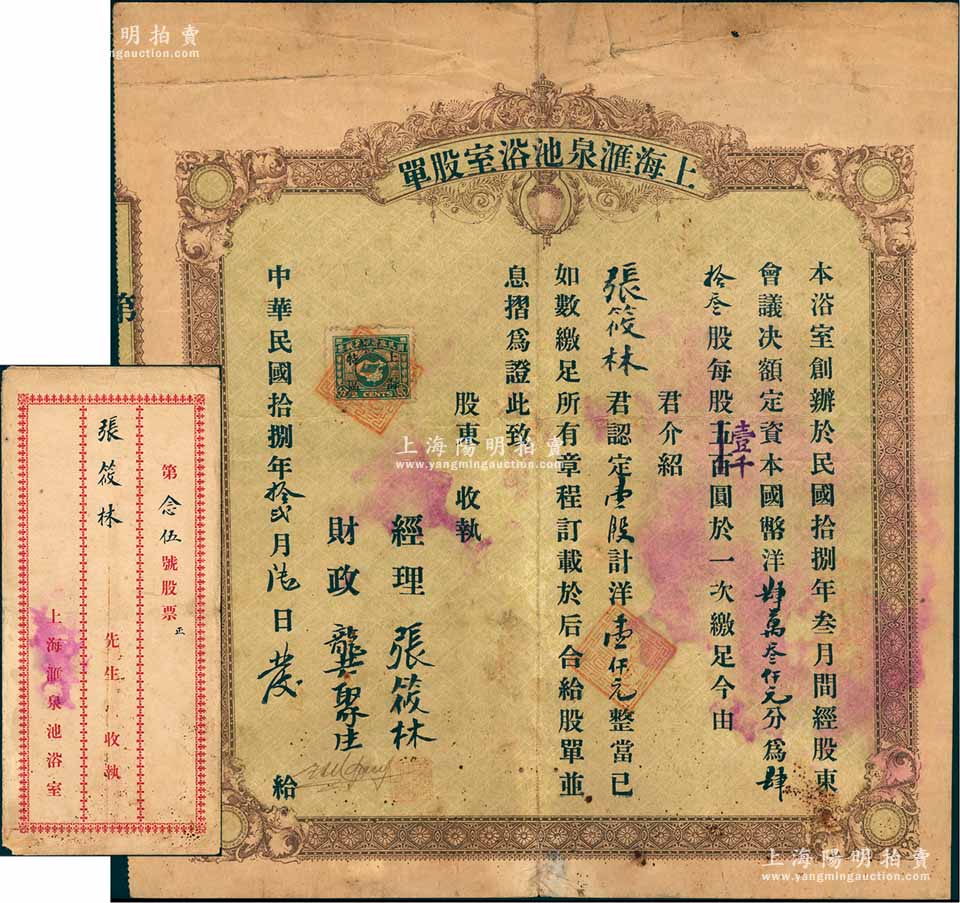 上海陽明拍賣
www.yangmingauction.com
單股室浴池泉滙海上
本浴室創辦於民國拾捌年叁月間經股東
會議决額定資本國幣洋肆萬叁仟元分爲肆
拾叁股每股五百圓於一次繳足今由
壹千
君介紹
張筱林 君認定壹股計洋壹仟元整當已
如數繳足所有章程訂載於后合給股單並
息摺爲證此致
股東 收執
經理 張筱林
財政 龔聚生
中華民國拾捌年拾弍月 日發 給
CENTS
第
第念伍號股票正
張筱林 先生 收執
上海滙泉池浴室
上海陽明拍賣
www.yangmingauction.com
上海陽明拍賣
www.yangmingauction.com